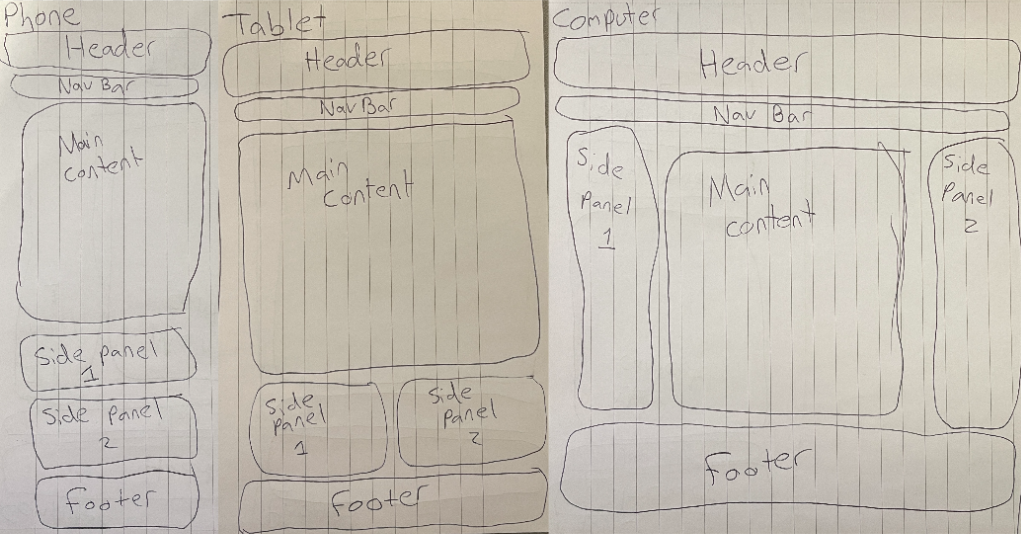 Phone
Header
Nav Bar
Main
content
Side panel
1
Side panel
2
Footer
Tablet
Header
Nav Bar
Main
content
Side
panel
1
Side
panel
2
Footer
Computer
Header
Nav Bar
Side
Panel
1
Main
content
Side
Panel
2
Footer